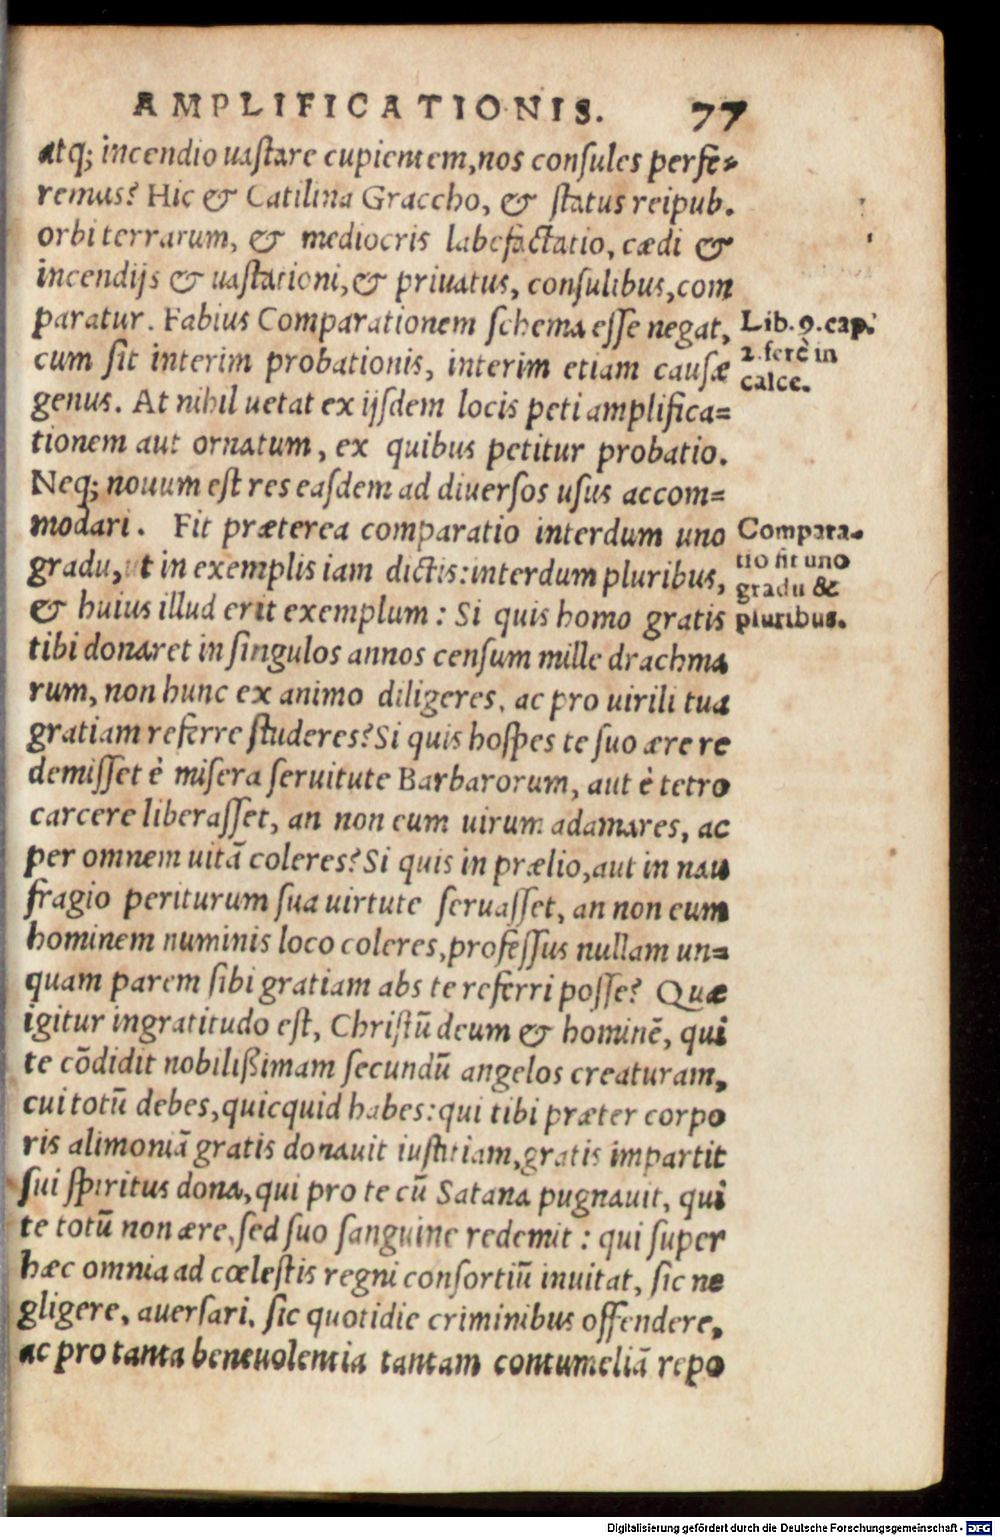 AMPLIFICATIONIS. 77
atq; incendio uastare cupientem, nos consules perfe-
remus? Hic & Catilina Graccho, & status reipub.
orbi terrarum, & mediocris labefactatio, cædi &
incendijs & uastationi, & priuatus, consulibus, com
paratur. Fabius Comparationem schema esse negat,
cum sit interim probationis, interim etiam causæ
genus. At nihil uetat ex ijsdem locis peti amplifica=
tionem aut ornatum, ex quibus petitur probatio.
Neq; nouum est res easdem ad diuersos usus accom=
modari. Fit præterea comparatio interdum uno
gradu, ut in exemplis iam dictis: interdum pluribus,
& huius illud erit exemplum: Si quis homo gratis
tibi donaret in singulos annos censum mille drachma
rum, non hunc ex animo diligeres, ac pro uirili tua
gratiam referre studeres? Si quis hospes te suo ære re
demisset è misera seruitute Barbarorum, aut è tetro
carcere liberasset, an non eum uirum adamares, ac
per omnem uitā coleres? Si quis in prælio, aut in nau
fragio periturum sua uirtute seruasset, an non eum
hominem numinis loco coleres, professus nullam un=
quam parem sibi gratiam abs te referri posse? Quæ
igitur ingratitudo est, Christū deum & hominē, qui
te cōdidit nobilißimam secundū angelos creaturam,
cui totū debes, quicquid habes: qui tibi præter corpo
ris alimoniā gratis donauit iustitiam, gratis impartit
sui spiritus dona, qui pro te cū Satana pugnauit, qui
te totū non ære, sed suo sanguine redemit: qui super
hæc omnia ad cœlestis regni consortiū inuitat, sic ne
gligere, auersari, sic quotidie criminibus offendere,
ac pro tanta beneuolentia tantam contumeliā repo
Lib. 9. cap.
2. ferè in
calce.
Compara-
tio fit uno
gradu &
pluribus.
Digitalisierung gefördert durch die Deutsche Forschungsgemeinschaft - DFG